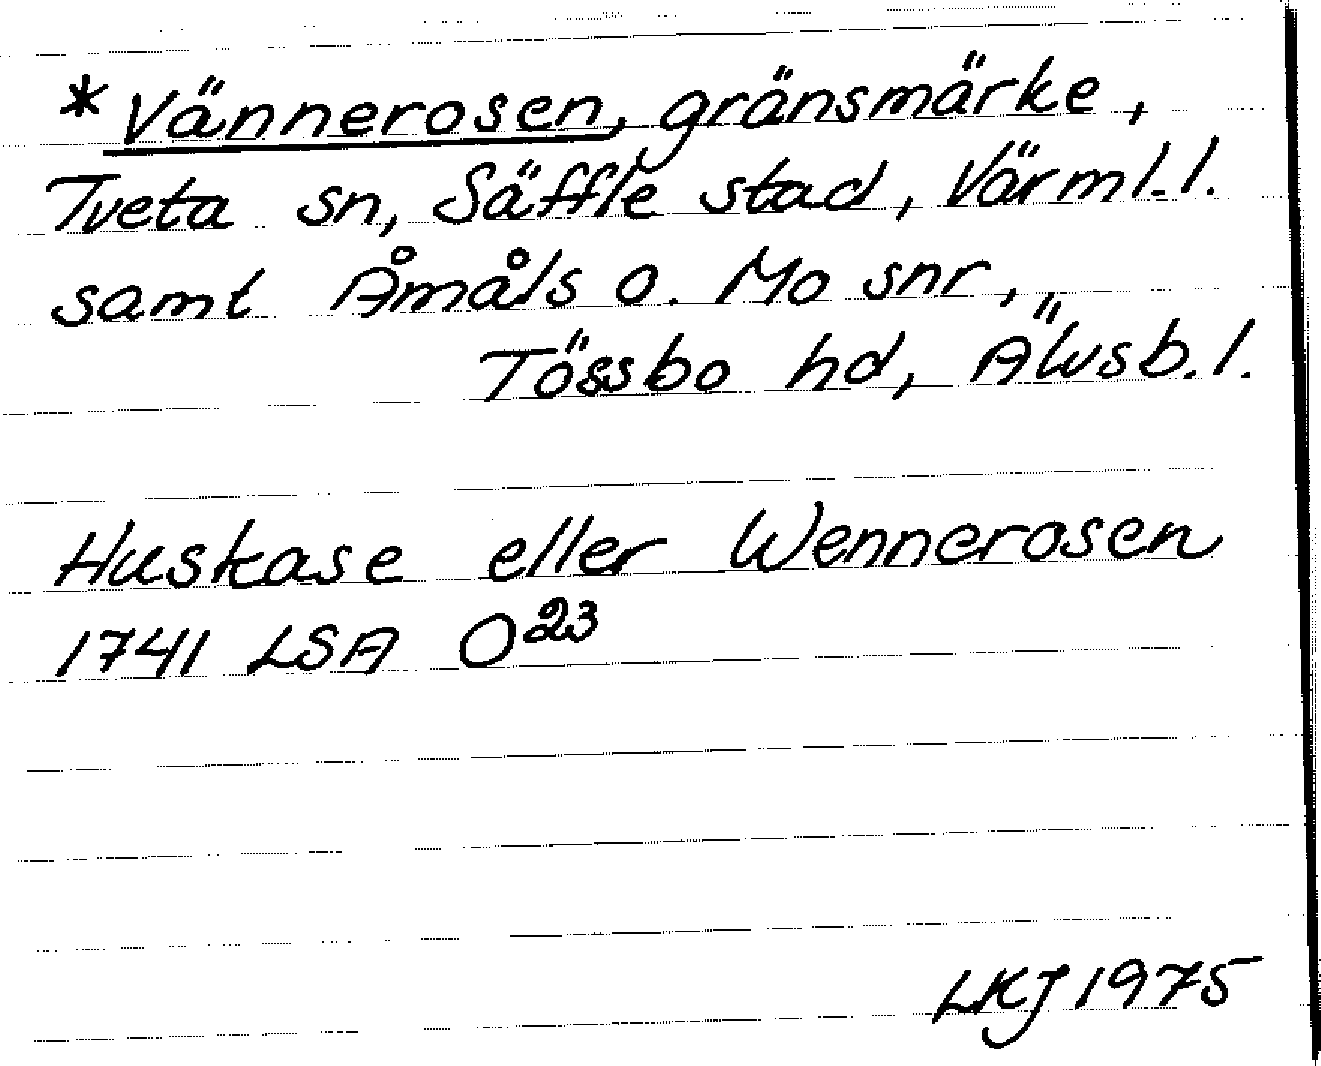 *Vännerosen, gränsmärke,
Tveta sn, Säffle stad, Värml. l.
samt Åmåls o. Mo snr,
Tössbo hd, Älvsb. l.
Huskase eller Wennerosen
1741 LSA O²³
LKJ 1975